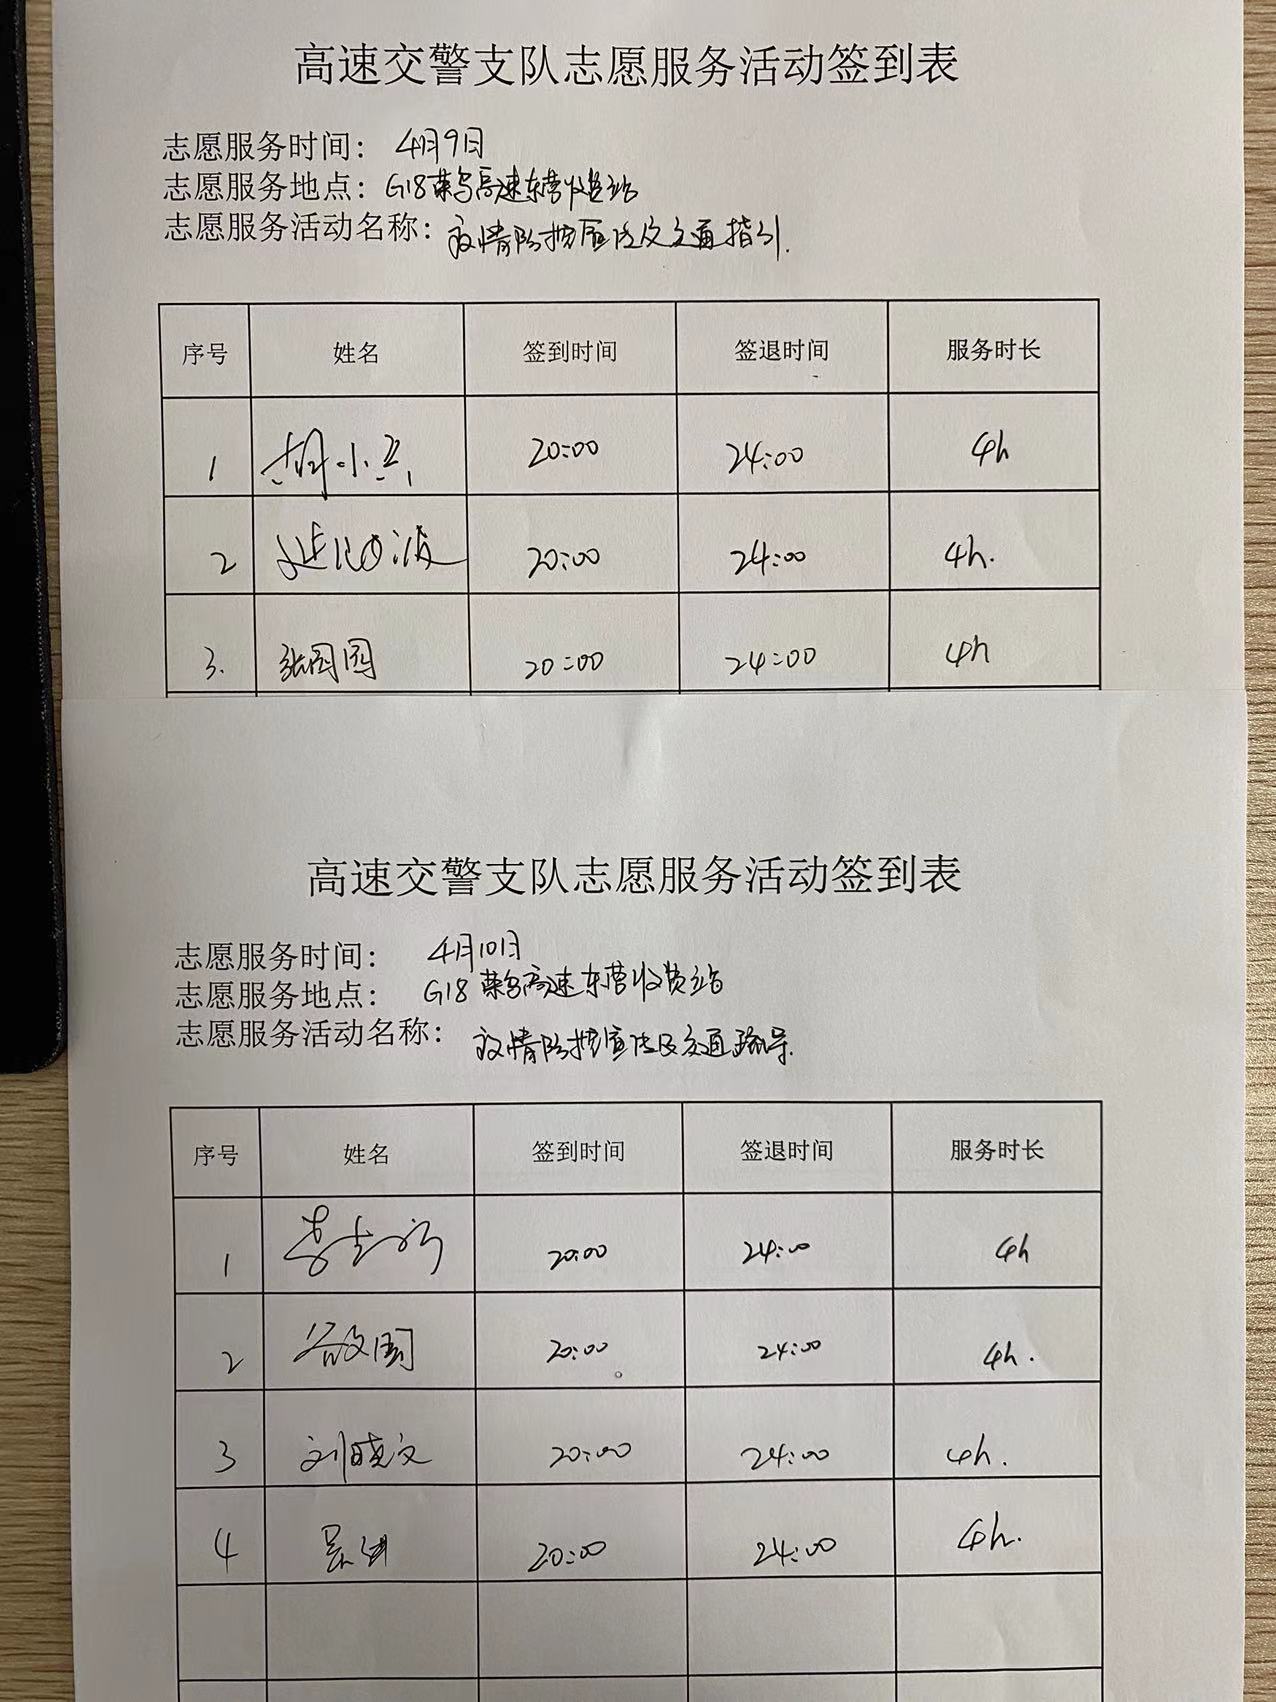 高速交警支队志愿服务活动签到表
志愿服务时间: 4月9日
志愿服务地点: G18荣乌高速东营收费站
志愿服务活动名称: 疫情防控宣传及交通指引.
序号 姓名 签到时间 签退时间 服务时长
1 胡小兵 20:00 24:00 4h
2 20:00 24:00 4h.
3. 张园园 20:00 24:00 4h
高速交警支队志愿服务活动签到表
志愿服务时间: 4月10日
志愿服务地点: G18荣乌高速东营收费站
志愿服务活动名称: 疫情防控宣传及交通疏导.
序号 姓名 签到时间 签退时间 服务时长
1 20:00 24:00 4h
2 20:00 24:00 4h.
3 刘晓文 20:00 24:00 4h.
4 20:00 24:00 4h.